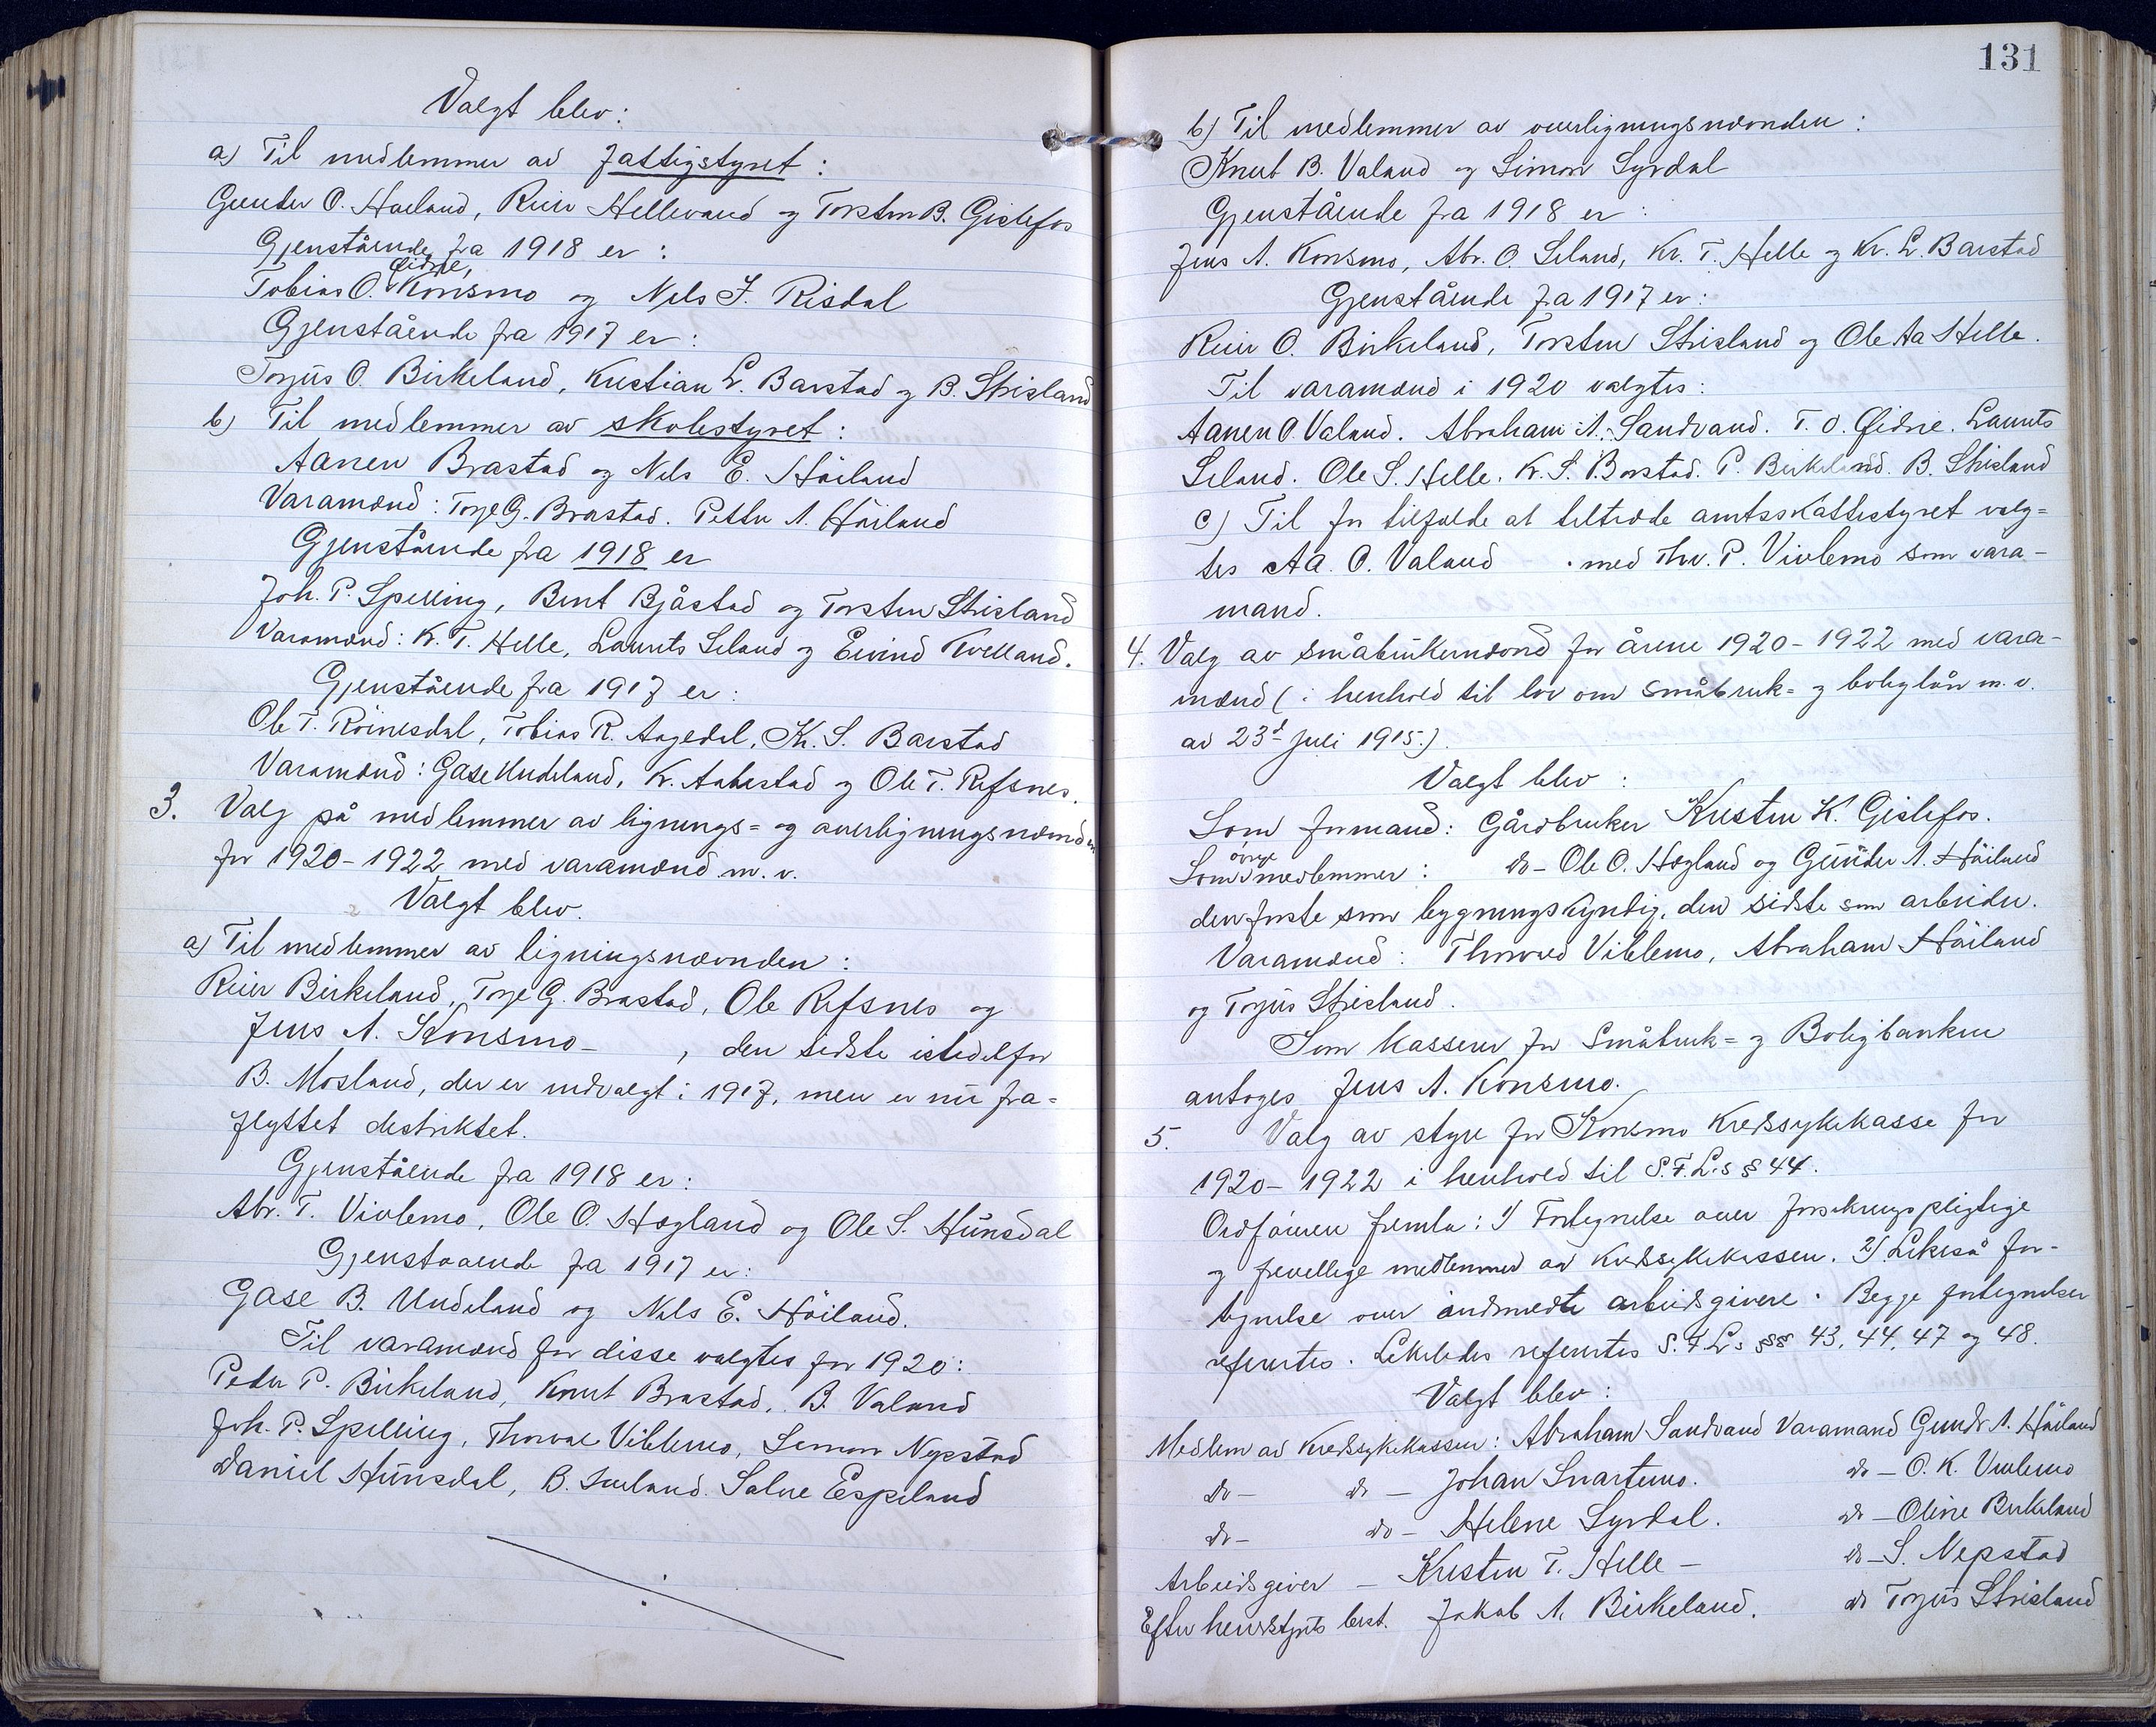 Valgt blev:
a) Til medlemmer av fattigstyret:
Gunder O. Høeland, Reier Hellevand og Torsten B. Gislefos
Gjenstående fra 1918 er:
Øidne,
Tobias O. Konsmo og Nels J. Risdal
Gjenstående fra 1917 er:
Torjus O. Birkeland, Kristian L. Barstad og B. Strisland
b) Til medlemmer av skolestyret:
Aanen Brastad og Nils E. Höiland
Varamænd: Torje G. Brastad. Petter A. Höiland
Gjenstående fra 1918 er
Joh. P. Spelling, Bent Bjåstad og Torsten Strisland
Varamænd: K. T. Helle, Laurits Leland og Eivind Kvelland.
Gjenstående fra 1917 er:
Ole T. Röinesdal, Tobias R. Aagedal, Kr. S. Barstad
Varamænd: Gase Undeland, Kr. Aabestad og Ole T. Refsnes.
3. Valg på medlemmer av lignings= og overligningsnævnden
for 1920-1922 med varamænd m. v.
Valgt blev.
a) Til medlemmer av ligningsnævnden:
Reier Birkeland, Torje G. Brastad, Ole Refsnes og
Jens A. Konsmo - , den sidste istedetfor
B. Mosland, der er indvalgt i 1917, men er nu fra=
flyttet distriktet.
Gjenstående fra 1918 er:
Abr. T. Vivlemo, Ole O. Hægland og Ole S. Hunsdal
Gjenstaaende fra 1917 er:
Gase B. Undeland og Nils E. Höiland.
Til varamænd for disse valgtes for 1920:
Peder P. Birkeland, Knut Brastad, B. Valand
Joh. P. Spelling, Thorval Viblemo, Simon Nepstad
Daniel Hunsdal, B. Seeland. Salve Espeland
131
b) Til medlemmer av overligningsnævnden:
Knut B. Valand og Simon Syrdal
Gjenstående fra 1918 er:
Jens A. Konsmo, Abr. O. Leland, Kr. T. Helle og Kr. L. Barstad
Gjenstående fra 1917 er:
Reier O. Birkeland, Torsten Strisland og Ole Aa Helle.
Til varamænd i 1920 valgtes:
Aanen O. Valand. Abraham A. Sandvand. T. O. Øidne. Laurits
Leland. Ole S. Helle. K. S. Barstad. P. Birkeland. B. Strisland
c) Til for tilfælde at tiltræde amtsskattestyret valg=
tes Aa. O. Valand - . med Thv. P. Vivlemo som vara-
mand.
4. Valg av småbrukernævnd for årene 1920-1922 med vara-
mænd (i henhold til lov om småbruk= og boliglån m. v.
av 23d Juli 1915.)
Valgt blev:
Som formand: Gårdbruker Kristen K. Gislefos.
øvrige
Som medlemmer: do - Ole O. Hægland og Gunder A. Höiland
den første som bygningskyndig, den sidste som arbeider.
Varamænd: Thorvald Viblemo, Abraham Höiland
og Torjus Strisland.
Som kasserer for Småbruk= og Boligbanken
antoges Jens A. Konsmo.
5. Valg av styre for Konsmo Kredssykekasse for
1920-1922 i henhold til S.F.L.s § 44.
Ordføreren fremla: 1) Fortegnelse over forsikringspligtige
og frivillige medlemmer av Kredssykekassen. 2) Likeså for-
tegnelse over indmeldte arbeidsgivere. Begge fortegnelser
refertes. Likeledes refertes S.F.L.s §§ 43, 44, 47 og 48.
Valgt blev:
Medlem av Kredssykekassen: Abraham Sandvand Varamand Gundr. A. Höiland
do - do - Johan Svartemo. do - O. K. Vivlemo
do - do - Helene Syrdal. do - Oline Birkeland
Arbeidsgiver - Kristen T. Helle - do - S. Nepstad
Efter herredstyrets best. Jakob A. Birkeland. do Torjus Strisland